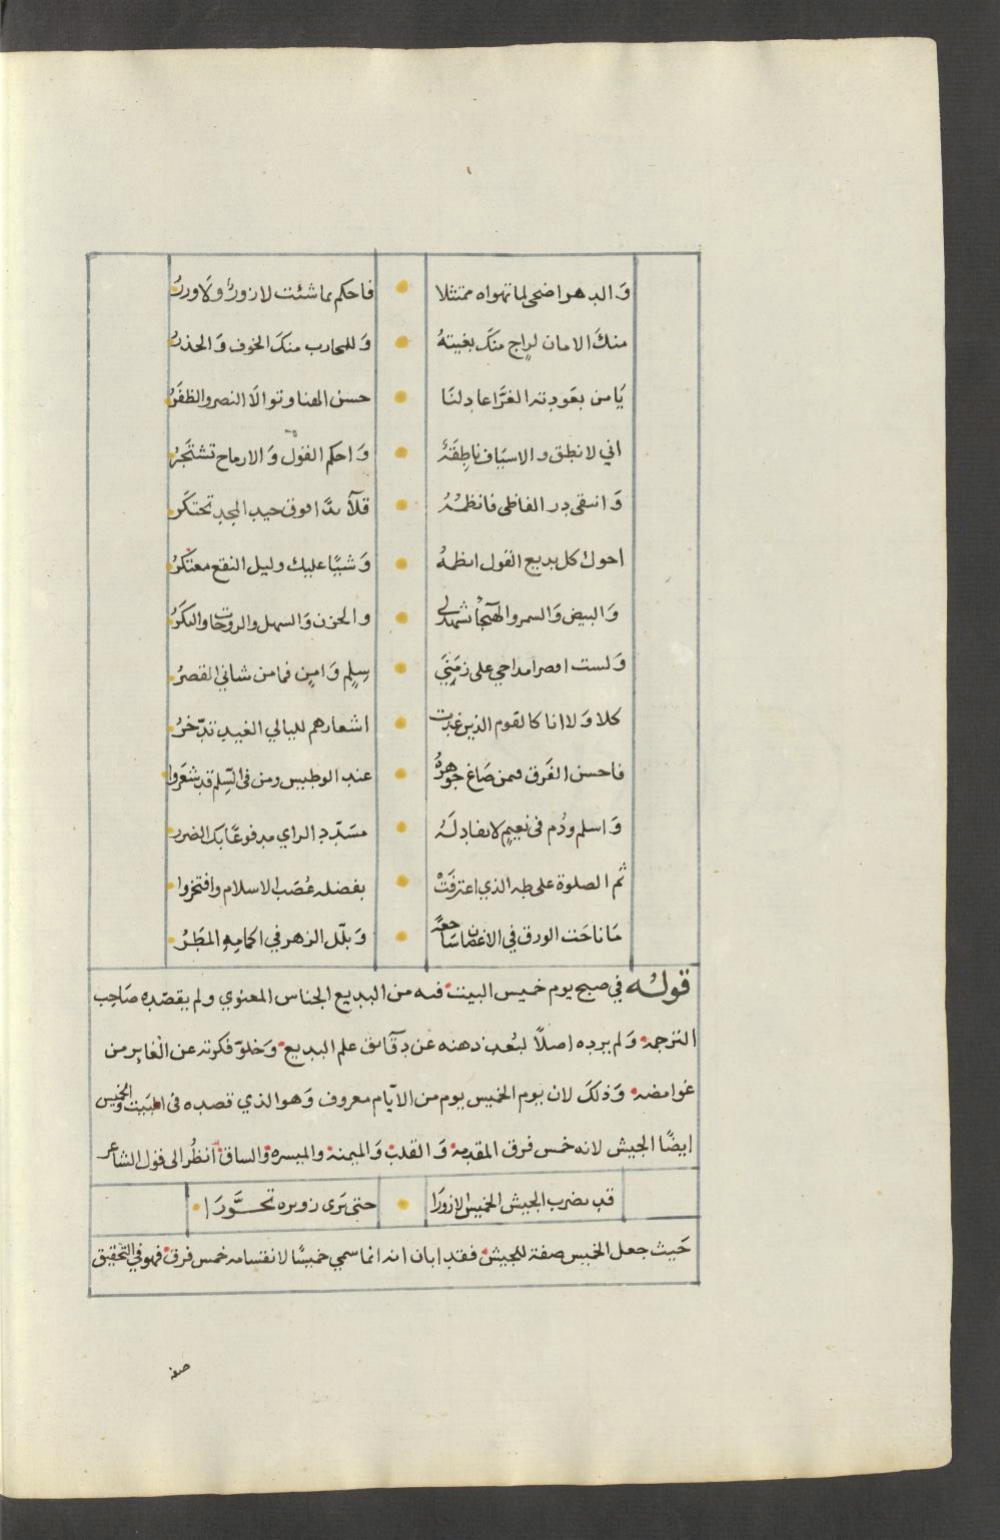 وَالدهر اضحى لما تهواه ممتثلا • فاحكم بما شئت لا زورٌ ولا وررُ
منكَ الامان لراجٍ منكَ بغيتهُ • وَللمحارب منكَ الخوف وَالحذرُ
يَا من بعَودته الغرَّا عاد لنَا • حسن الهنا وتوالَا النصر والظفَرُ
اني لانطق والاسيَاف ناطِقَةٌ • وَاحكم القول وَالارماح تشتَجرُ
وَانتقى در الفاظى فانظمُهُ • فوق جيد المجد تحتكَر
احوك كل بديع القول انظمهُ • وَشيًا عليك وليل النقع معتكرُ
وَالبيض وَالسمر والهَيجَا تشهدلى • والحزن وَالسهل والروحَات والبكَرُ
وَلست اقصر امداحي على زمَنٍ • سِلمٍ وَامنٍ فما من شاني القصرُ
كلا وَلا انا كالقوم الذين غدت • اشعارهم لليالي الغيد تدّخرُ
فاحسن الفَرق فمن صَاغ جَوهرهُ • عند الوطيس ومن فى السِّلم قد شعَروا
وَاسلم ودُم فى نعيمٍ لا نفاد لَهُ • مسَدّد الراي مدفوعًا بك الضرر
ثم الصلوة على طه الذي اعترفَتْ • بفضله عُصَب الاسلام وافتخروا
مَا ناحَت الورق في الاغصَان سَاجعةً • وَبلّل الزهر في اكمامِهِ المطَرُ
قولُه في صبح يوم خميس البيت فيه من البديع الجناس المعنوي ولم يقصده صَاحِب
الترجمة وَلم يرده اصلًا لبُعد ذهنه عن دقآئق علم البديع وَخلوّ فكرته عن الغَابِر من
غوامضه وَذلكَ لان يوم الخميس يوم من الايّام معروف وَهو الذي قصده فى البَيت والخميس
ايضًا الجيش لانه خمس فرق المقدمة وَالقلب وَالميمنة والميسره وَالساق انظُر الى قول الشاعر
قد نضرب الجيش الخميس الازورَا • حتى ترى زويره تحَــوَّرَا
حَيث جعل الخميس صفة للجيش فقد ابان انه انما سمي خميسًا لانقسامه خمس فرق فهو في التحقيق
صفة